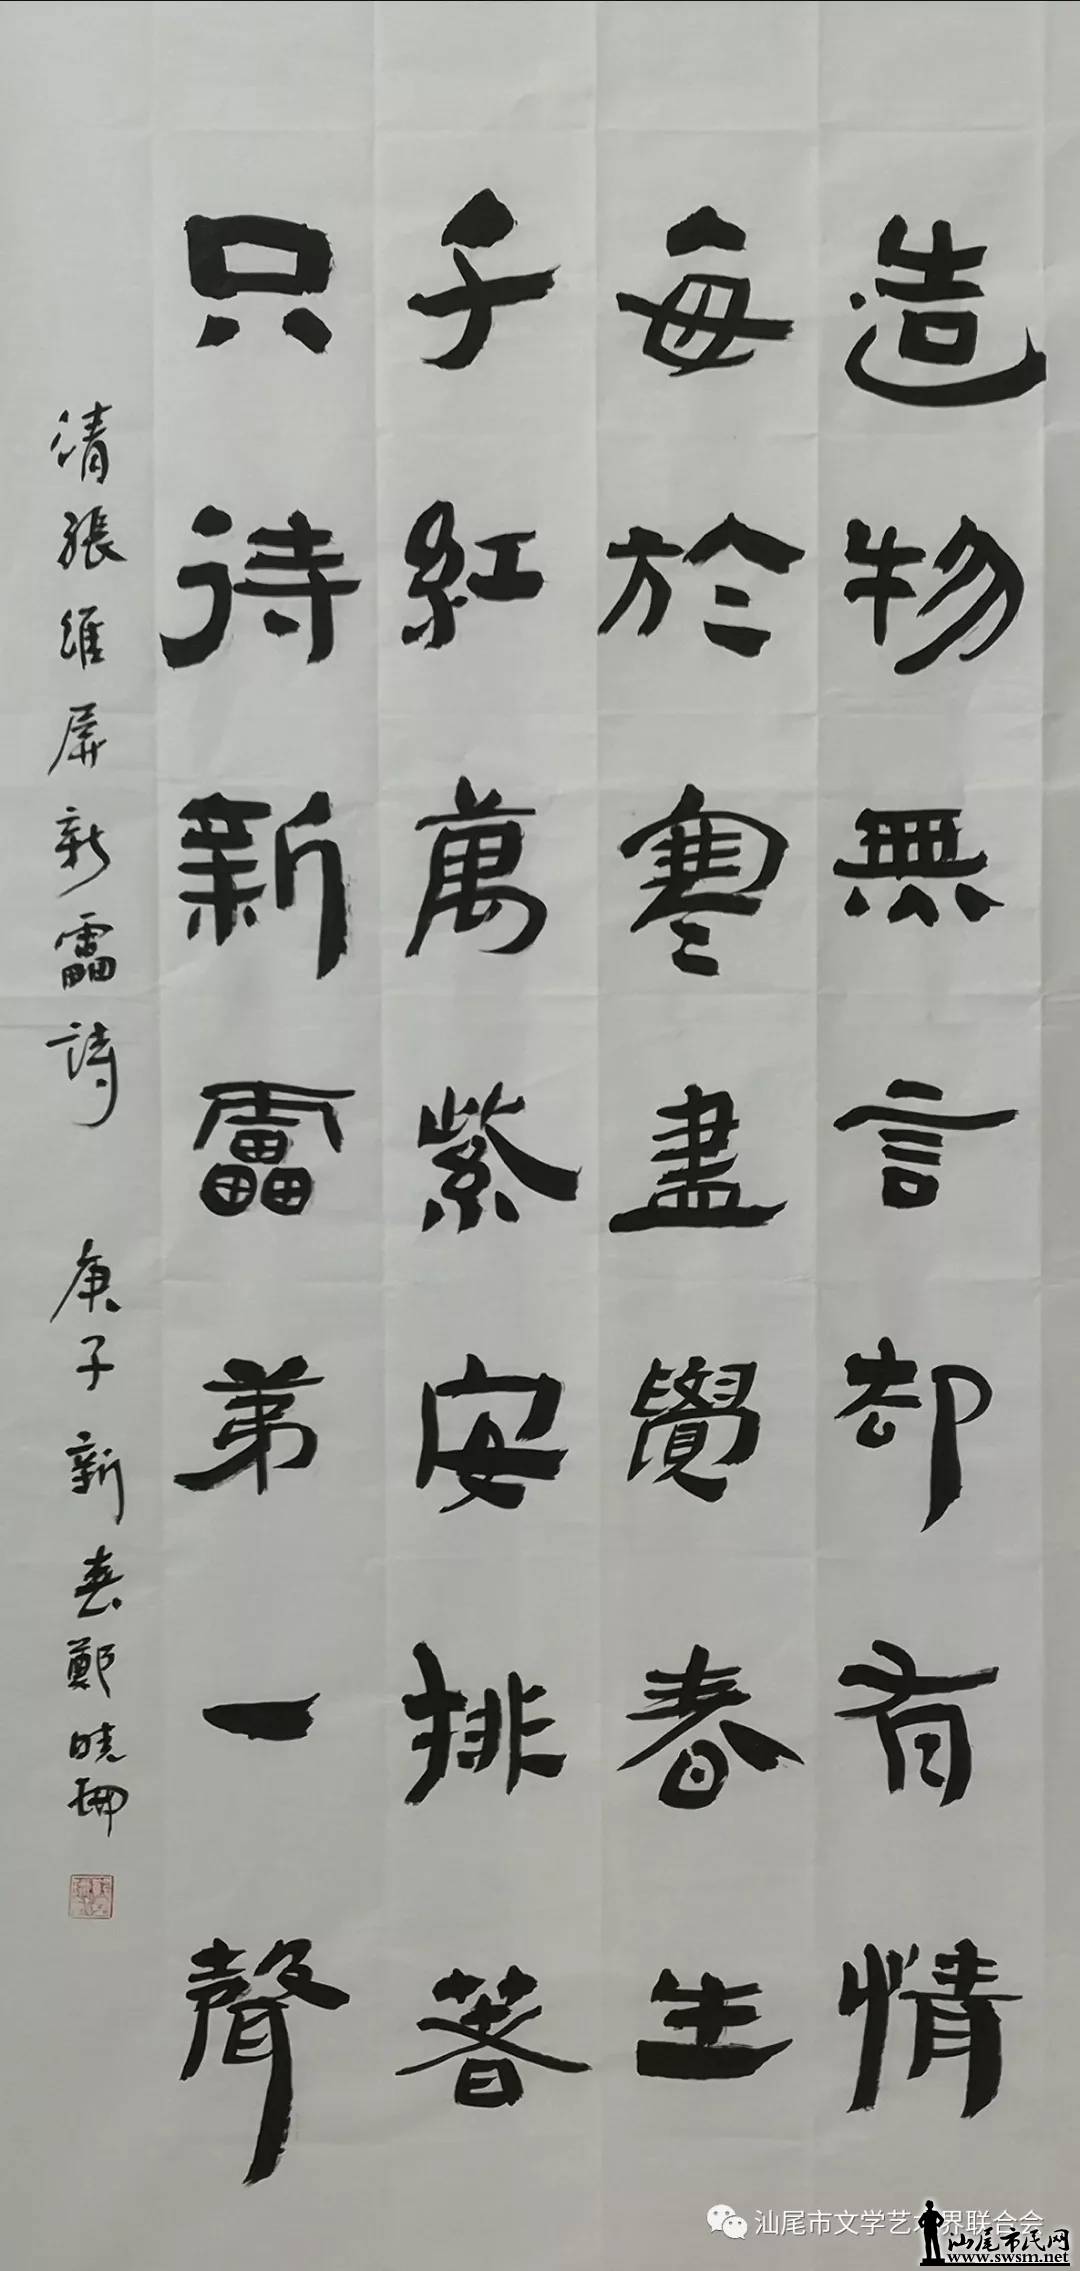 造物無言却有情
每於寒盡覺春生
千紅萬紫安排著
只待新雷第一聲
清張維屏新雷詩 庚子新春鄭曉珊
汕尾市文学艺术界联合会
汕尾市民网
www.swsm.net